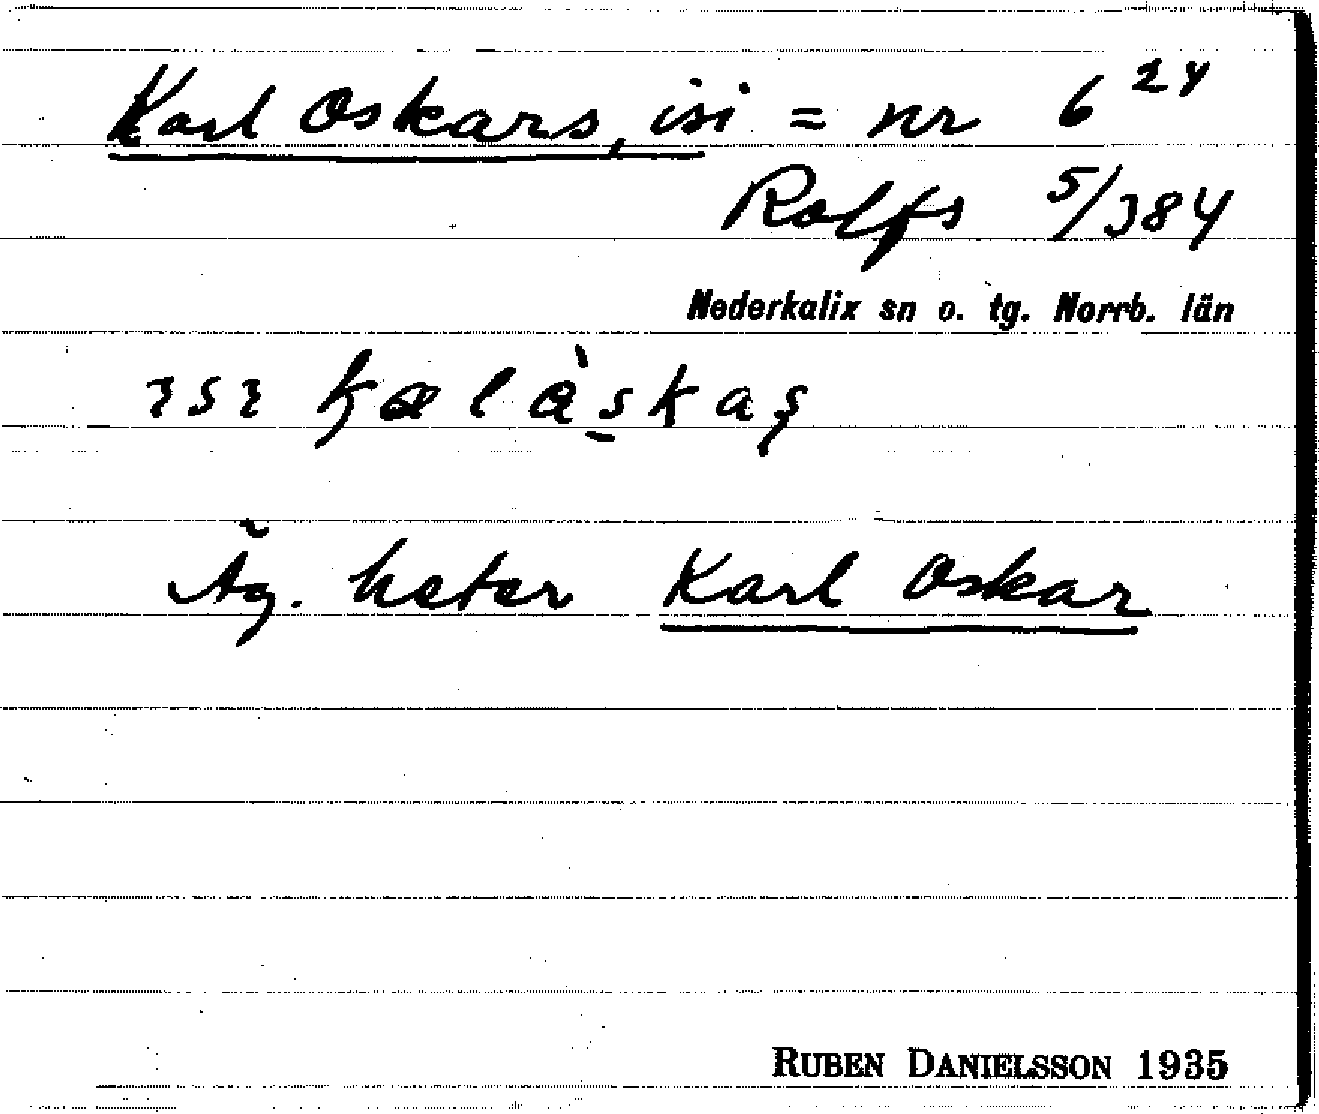 Karl Oskars, isi = nr 6²⁴
Rolfs 5/384
Nederkalix sn o. tg. Norrb. län
ɿsɿ kælàskaş
Äg. heter Karl Oskar
RUBEN DANIELSSON 1935